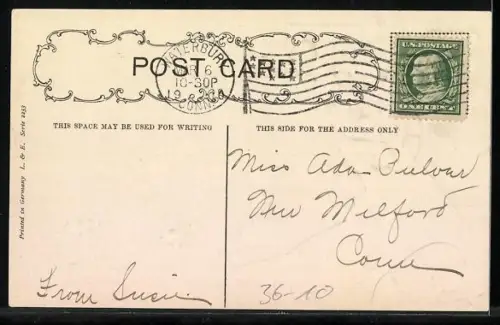 WATERBURY
6
CONN.
POST CARD
U.S. POSTAGE
ONE CENT
THIS SPACE MAY BE USED FOR WRITING
THIS SIDE FOR THE ADDRESS ONLY
Printed in Germany L. & E. Serie 2253
Miss Ada
New Milford
Conn
From Susie
36-10